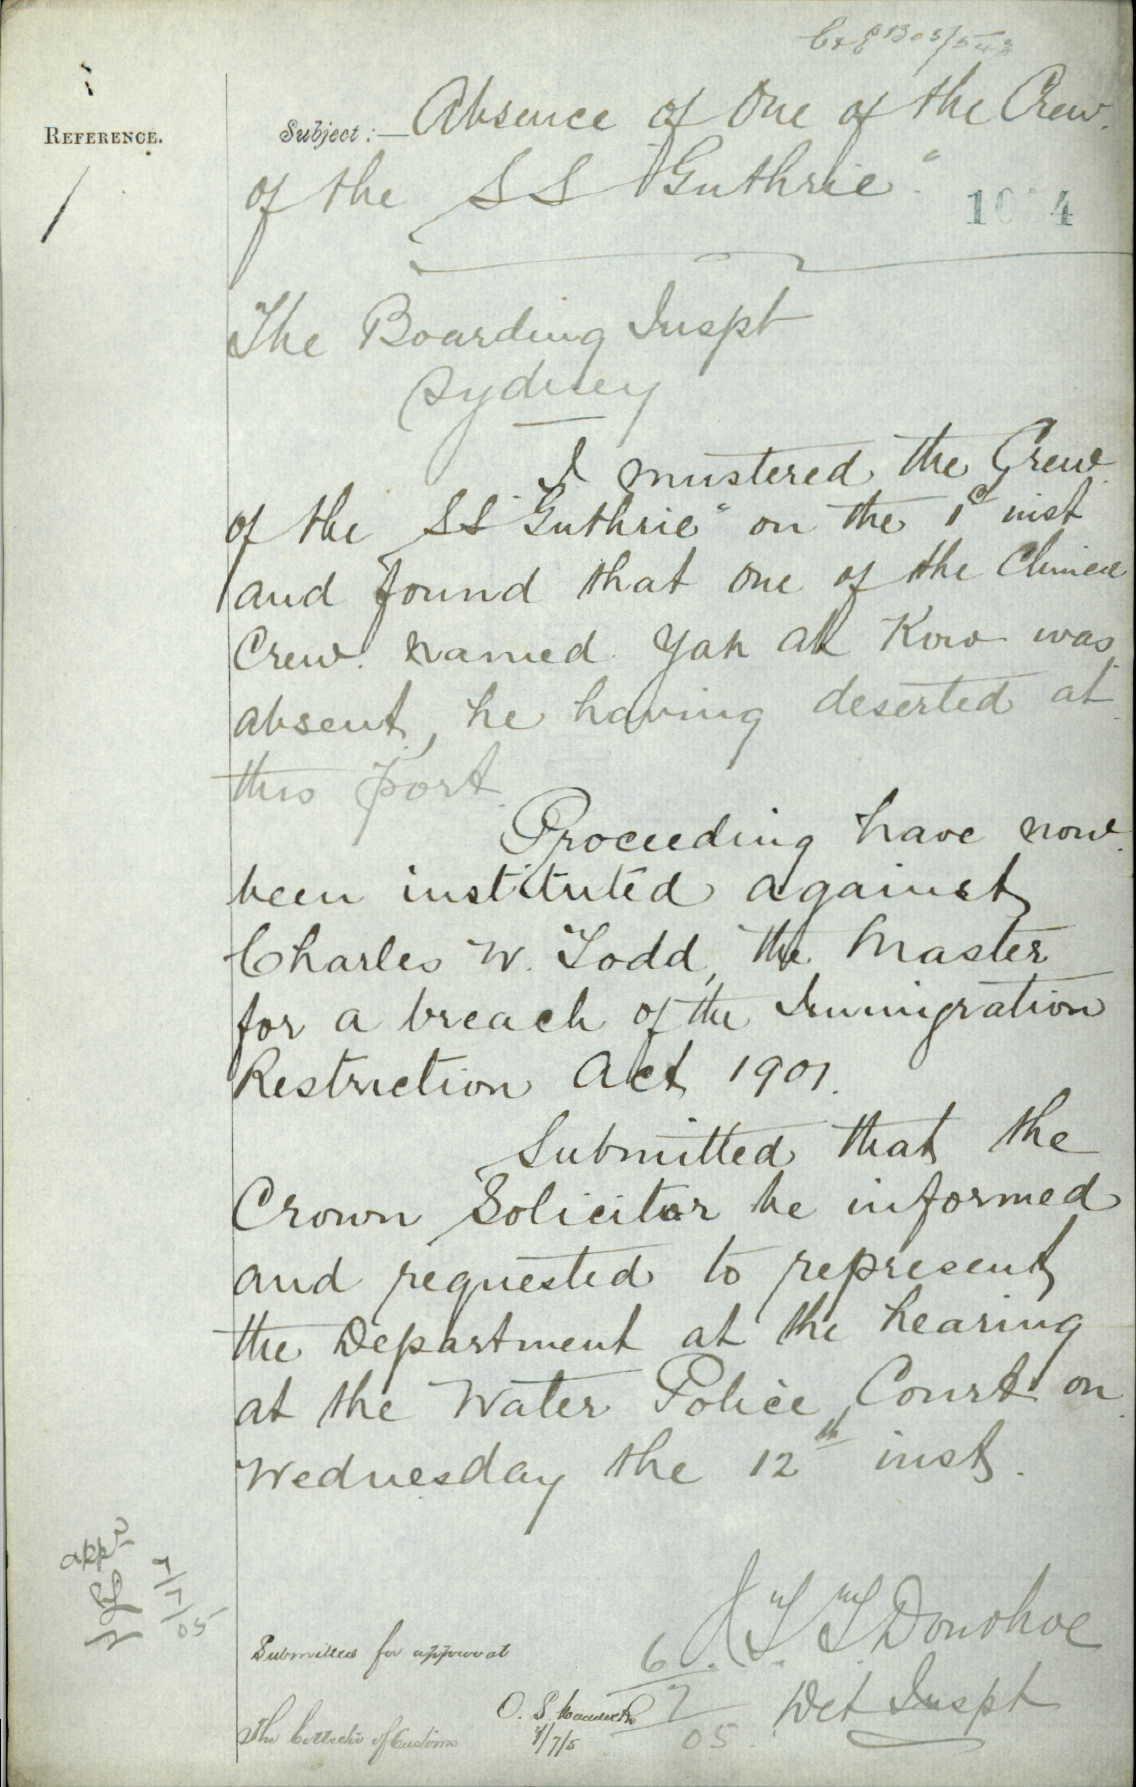 REFERENCE.
Subject:— Absence of One of the Crew
of the SS "Guthrie"
The Boarding Inspt
Sydney
I mustered the Crew
of the SS "Guthrie" on the 1st inst
and found that one of the Chinese
Crew named Yah Ah Kow was
absent, he having deserted at
this port.
Proceeding have now
been instituted against
Charles W. Todd, the Master
for a breach of the Immigration
Restriction Act 1901.
Submitted that the
Crown Solicitor be informed
and requested to represent
the Department at the hearing
at the Water Police Court on
Wednesday the 12th inst.
appd
7/7/05
J T T Donohoe
Det Inspt
6
7
05
Submitted for approval
O. S.
7/7/5
The Collector of Customs